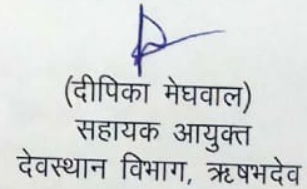 (दीपिका मेघवाल)
सहायक आयुक्त
देवस्थान विभाग, ऋषभदेव